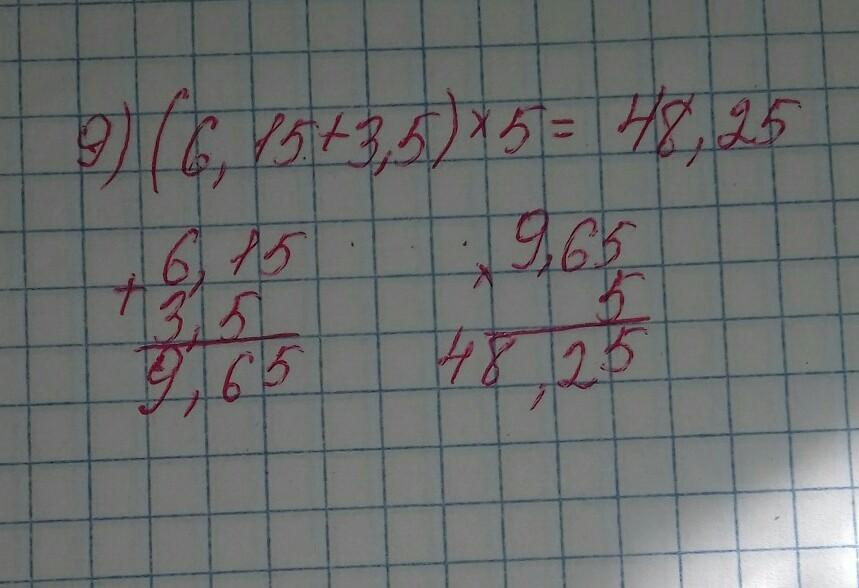 9) (6,15+3,5)×5= 48,25
+ 6,15
3,5
9,65
× 9,65
5
48,25